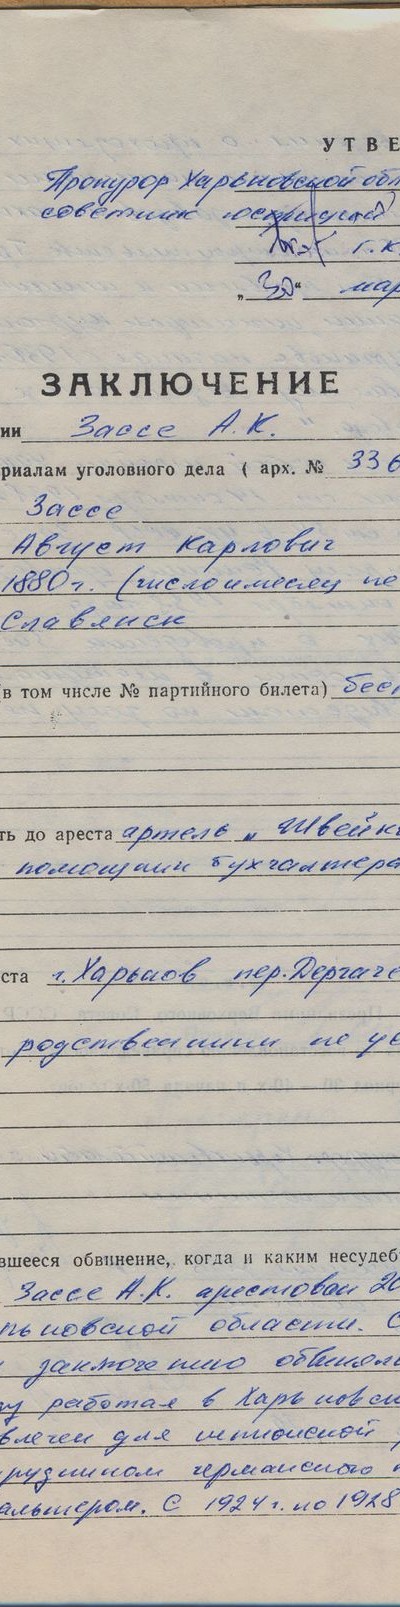 УТВЕ
Прокурор Харьковской обл
советник юстиции
Г.К
"30" мар
ЗАКЛЮЧЕНИЕ
ии Зассе А.К.
риалам уголовного дела ( арх. № 336
Зассе
Август Карлович
1880г. (число и месяц не
Славянск
(в том числе № партийного билета) бесп
ть до ареста артель „Швейн
помощник бухгалтера
ста г.Харьков пер.Дергаче
родственники не ус
вшееся обвинение, когда и каким несудеб
Зассе А.К. арестован 20
рьковской области. С
заключению обвинял
у работая в Харьковск
влечен для шпионской
трудником германского к
альтером. С 1924г. по 1928